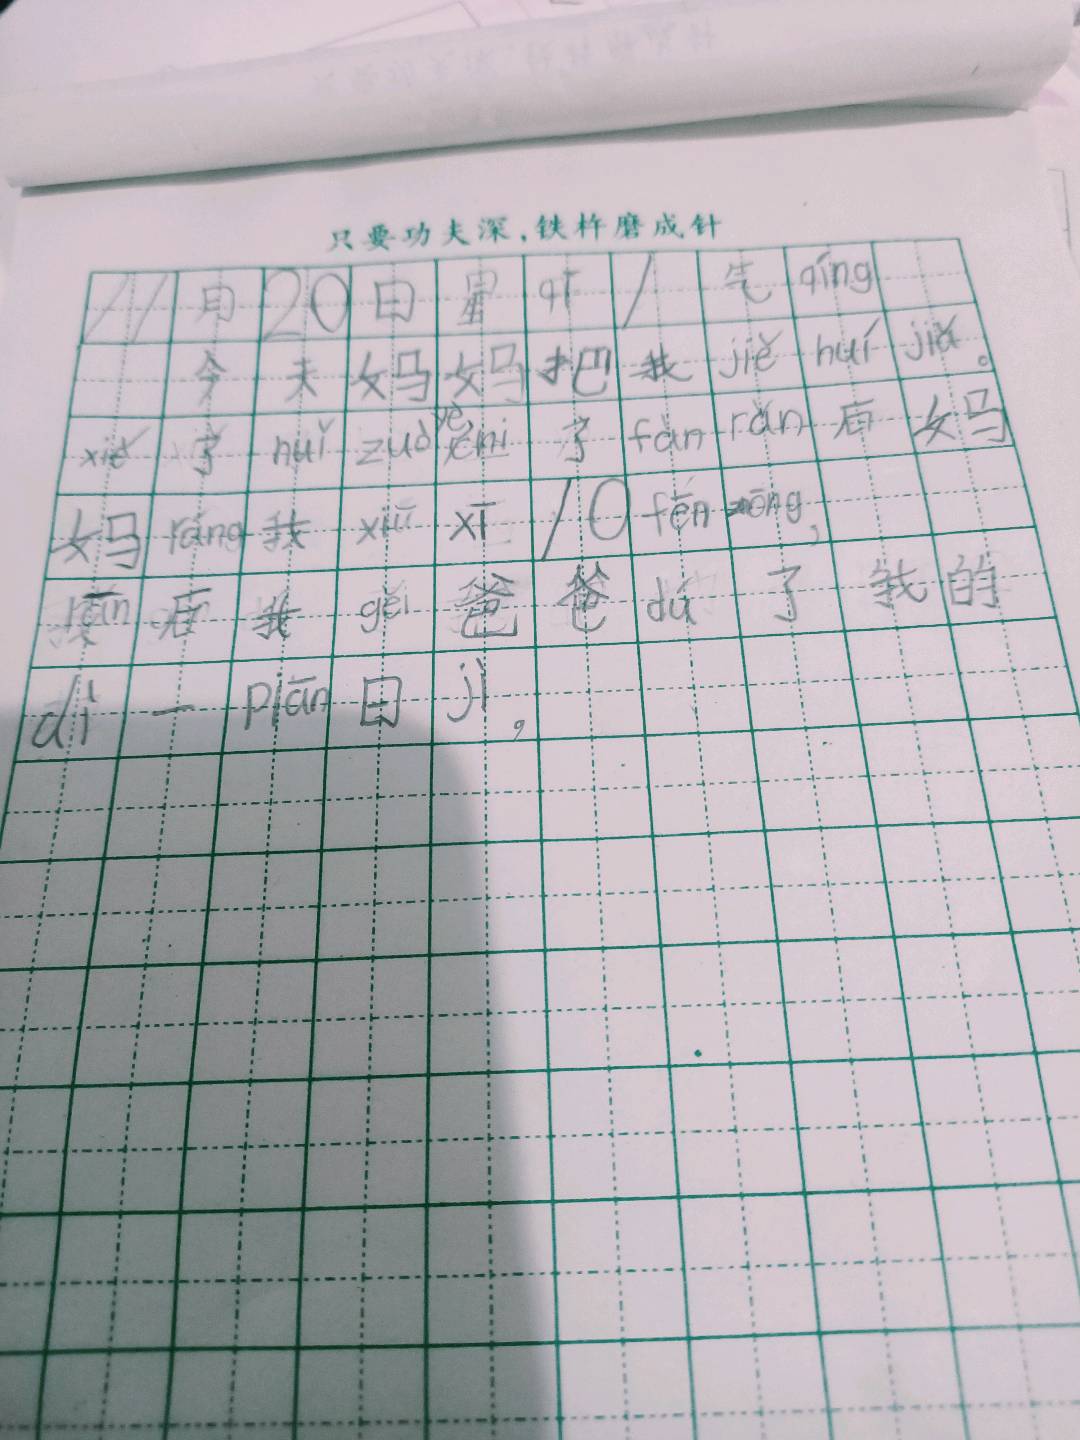 只要功夫深,铁杵磨成针
11月20日星qī1气qíng
今天妈妈把我jiě huí jiā。
xiě字huǐ zuò yè 了fàn rán后妈
妈ràng我xiū xī 10 fēn zōng,
rán后我gěi爸爸dú了我的
dì一piān日jì。